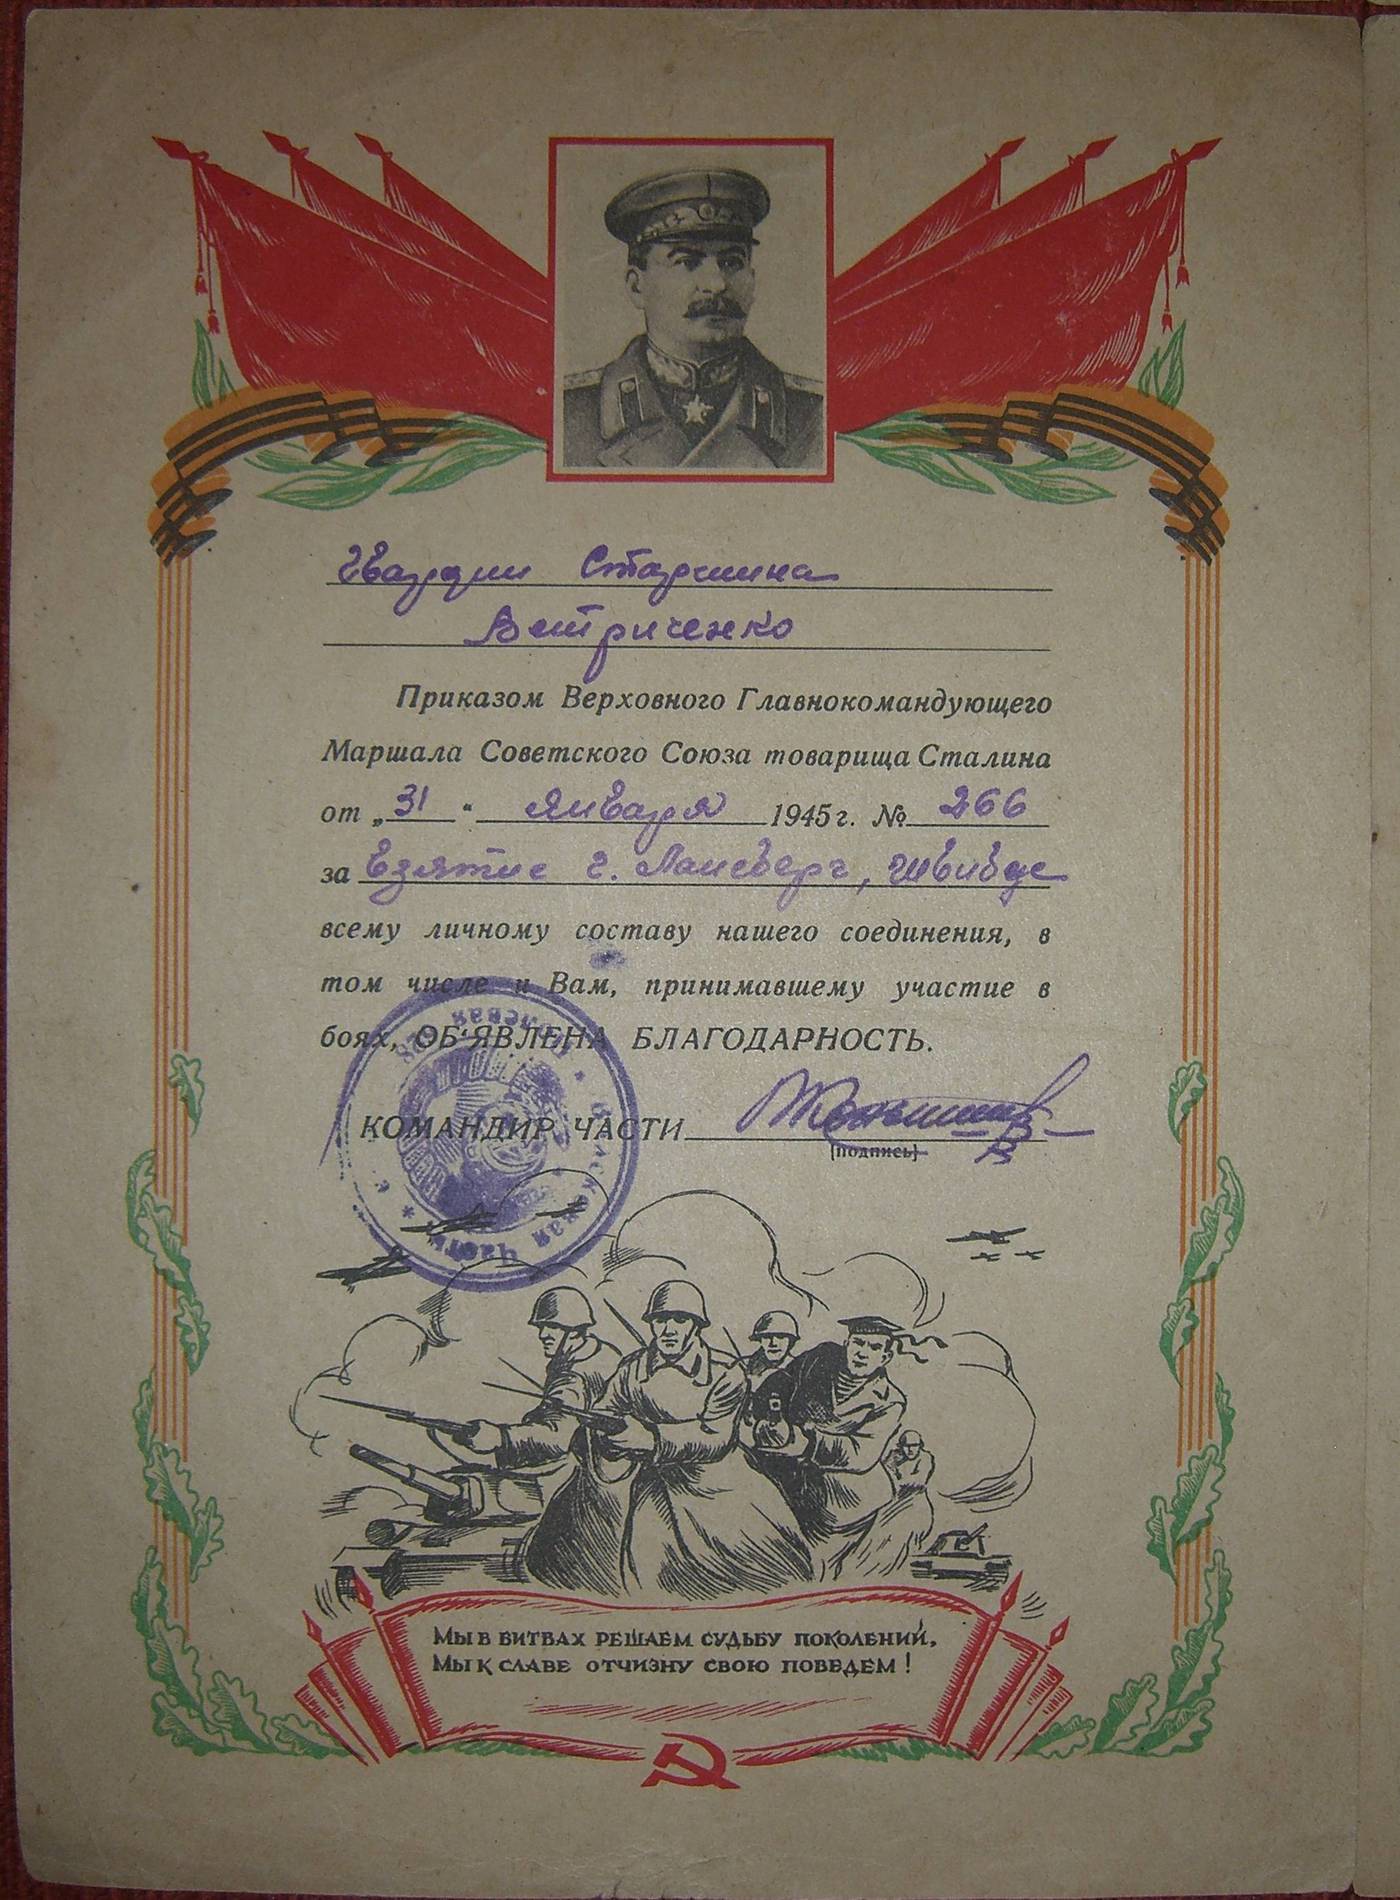 Гвардии Старшина
Ветриченко
Приказом Верховного Главнокомандующего
Маршала Советского Союза товарища Сталина
от „31“ января 1945 г. № 266
за взятие г. Лансберг, Швибус
всему личному составу нашего соединения, в
том числе и Вам, принимавшему участие в
боях, ОБ'ЯВЛЕНА БЛАГОДАРНОСТЬ.
КОМАНДИР ЧАСТИ
(подпись)
Мы в битвах решаем судьбу поколений,
Мы к славе отчизну свою поведем!